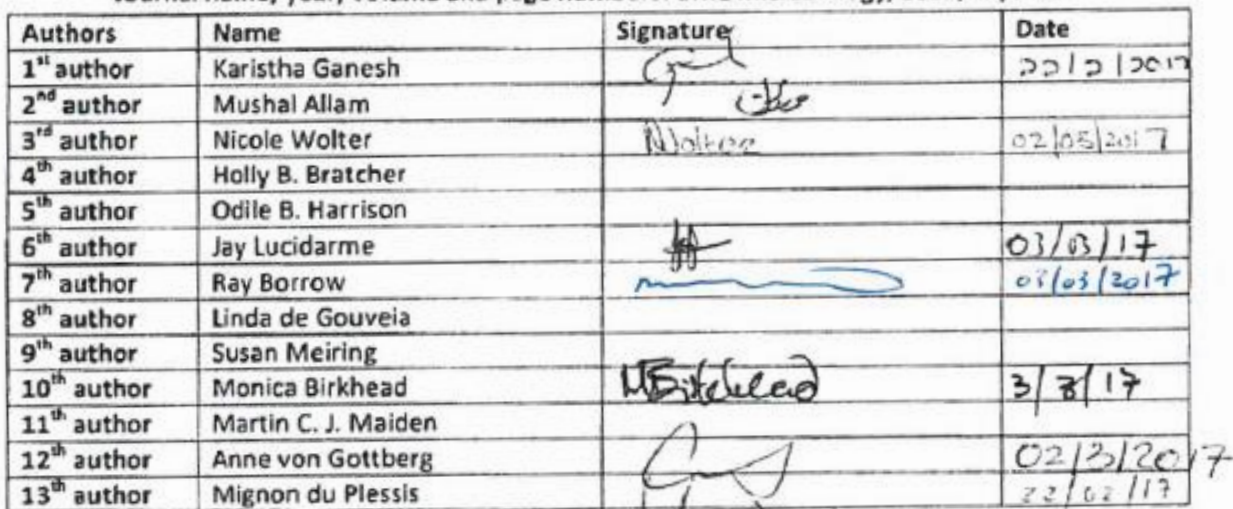 Authors Name Signature Date
1st author Karistha Ganesh 22/2/2017
2nd author Mushal Allam
3rd author Nicole Wolter NWolter 02/05/2017
4th author Holly B. Bratcher
5th author Odile B. Harrison
6th author Jay Lucidarme 03/03/17
7th author Ray Borrow 03/03/2017
8th author Linda de Gouveia
9th author Susan Meiring
10th author Monica Birkhead MBirkhead 3/3/17
11th author Martin C. J. Maiden
12th author Anne von Gottberg 02/3/2017
13th author Mignon du Plessis 22/02/17